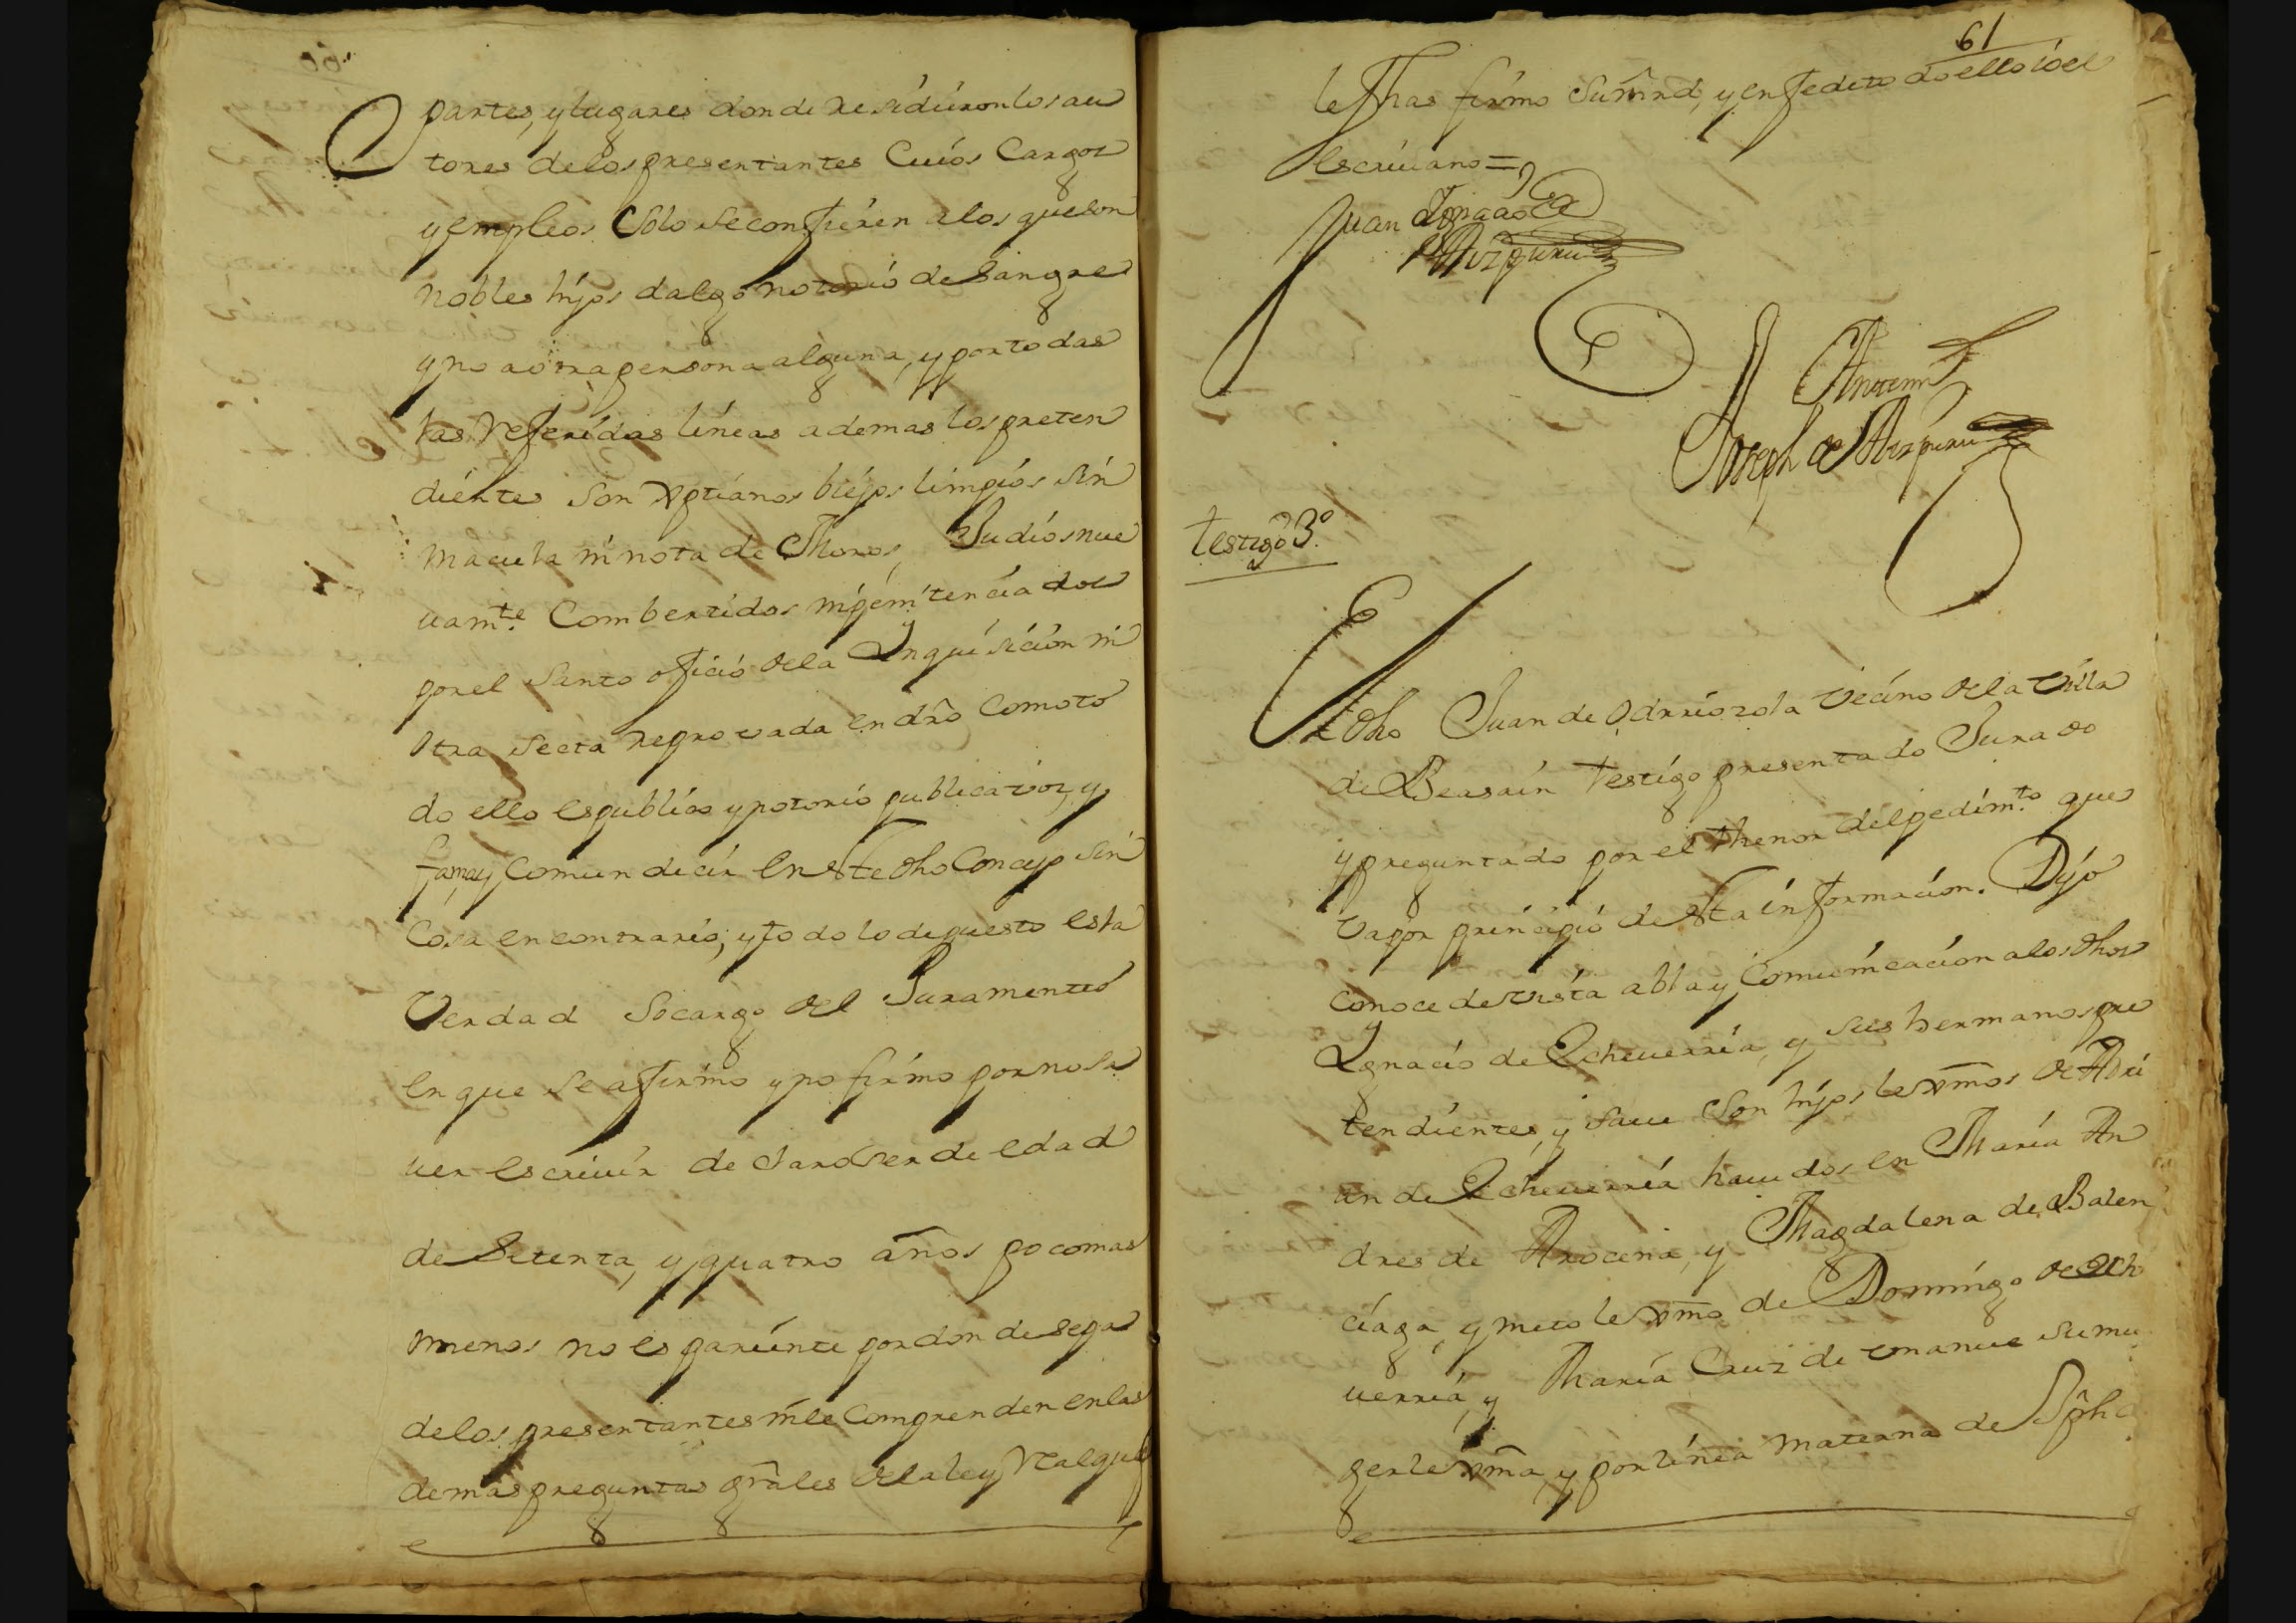 partes, y lugares donde residieron los au
tores de los presentantes Cuios Cargos
y empleos Solo se confieren a los que son
nobles hijos dalgo notorio de Sangre
y no a otra persona alguna, y por todas
las referidas lineas ademas los preten
dientes son xptianos biejos limpios sin
macula ni nota de Moros, Judios nue
uamte. Combertidos ni penitenciados
por el Santo oficio de la Inquisicion ni
otra secta reprovada en dro Como to
do ello es publico y notorio publica voz, y
fama, y Comun decir en este dho Concejo sin
Cosa en contrario; y todo lo depuesto es la
Verdad Socargo del Juramento
en que se afirmo y no firmo por no sa
uer escriuir declaro ser de edad
de Setenta, y quatro años poco mas
o menos no es pariente por donde sepa
de los presentantes ni le Comprenden en las
demas preguntas grales de la ley Real que
61
lefhas firmo Sumrd, y en fe de todo ello io el
escriuano =
Juan Ignacio de
Aizpuru
Antemi
Joseph de Aizpuru
testigo 3º.
El dho Juan de Odriozola vecino de la Villa
de Beasain testigo presentado Jurado
y preguntado por el thenor del pedimto. que
va por principio de esta informacion. Dijo
conoce de vista abla y Comunicacion a los dhos
Ignacio de Echeuerria, y sus hermanos pre
tendientes, y saue Son hijos lexmos de Adri
an de Echeuerria hauidos en Maria An
dres de Arocena, y Magdalena de Balen
ciaga, y nieto lexmo de Domingo de Eche
uerria, y Maria Cruz de vnanue su mu
ger lexma, y por linea Materna de Jph